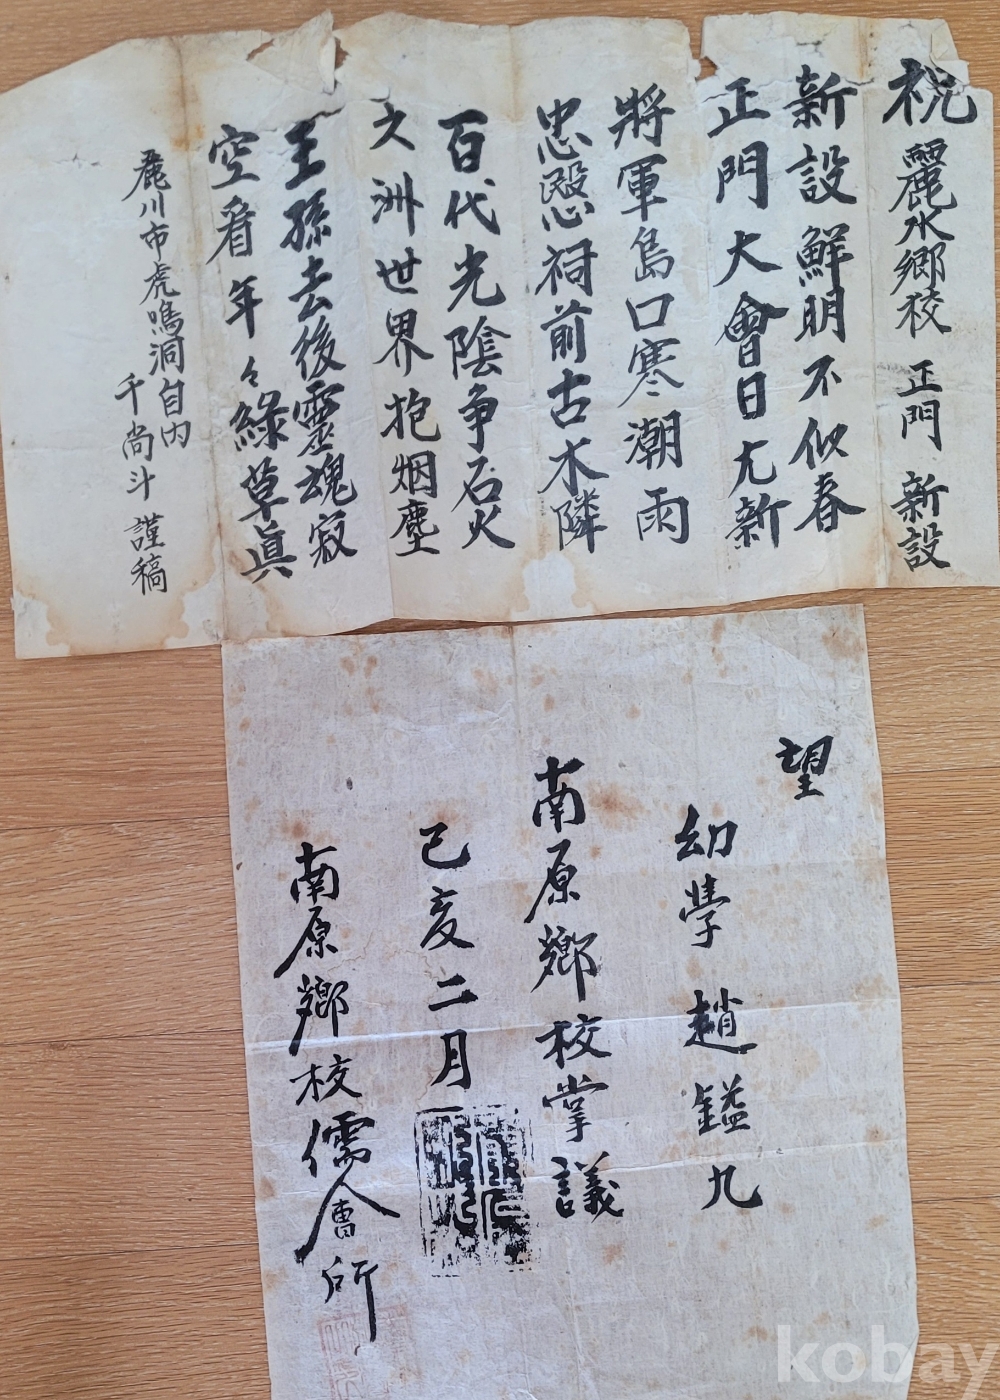 祝 麗水鄉校 正門 新設
新設鮮明不似春
正門大會日尤新
將軍島口寒潮雨
忠愍祠前古木隣
百代光陰争石火
六洲世界抱烟塵
王孫去後靈魂寂
空看年々綠草眞
麗川市虎鳴洞自内
千尚斗 謹稿
望
幼學 趙鎰九
南原鄉校掌議
己亥二月
南原鄉校儒會所
kobay